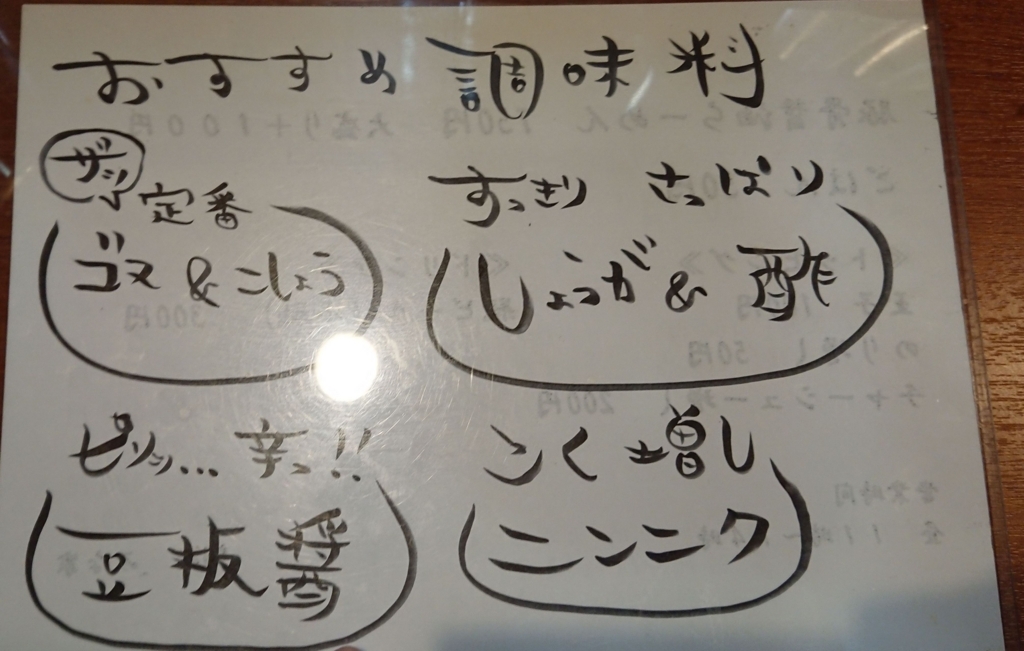 おすすめ 調味料
ザッ
定番
ゴマ & こしょう
すっきり さっぱり
しょうが & 酢
ピリッ… 辛っ!!
豆板醤
こく増し
ニンニク